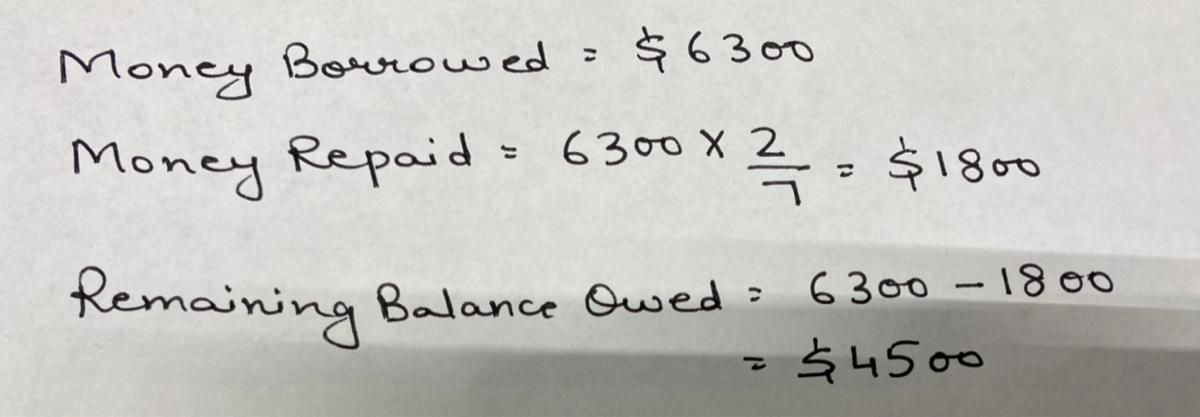 Money Borrowed = $6300
Money Repaid = 6300 X 2/7 = $1800
Remaining Balance Owed = 6300 - 1800
= $4500